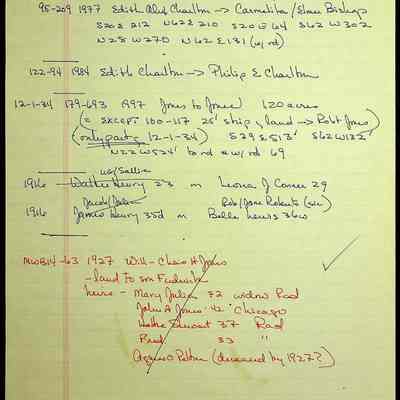 95-209 1977 Edith Alid Charlton → Carmelita / Elmer Bishop
S202 212 N622 210 S20 E 64 S62 W302
N28 W270 N62 E131 (w/ rd)
122-94 1984 Edith Charlton → Philip E Charlton
12-1-34 179-693 1997 Jones to Jones 120 acres
(= except 100-117 25' strip, land → Robt Jones)
(only part of 12-1-34) S29 E513' S62W132'
N22 W524' to rd & w/ rd 69
w/ Sallie
1916 Walter Henry 23 m Leona J Comer 29
Jacob/Julia Rob/Jane Roberts (sic)
1916 James Henry 35d m Belle Lewis 36w
MWB14-63 1927 Will - Chas H Jones
- land to son Frederick
heirs - Mary Julia 72 widow Rad
John A Jones 42 Chicago
Walter Stewart 37 Rad
Fred 33 "
(deceased by 1927?)